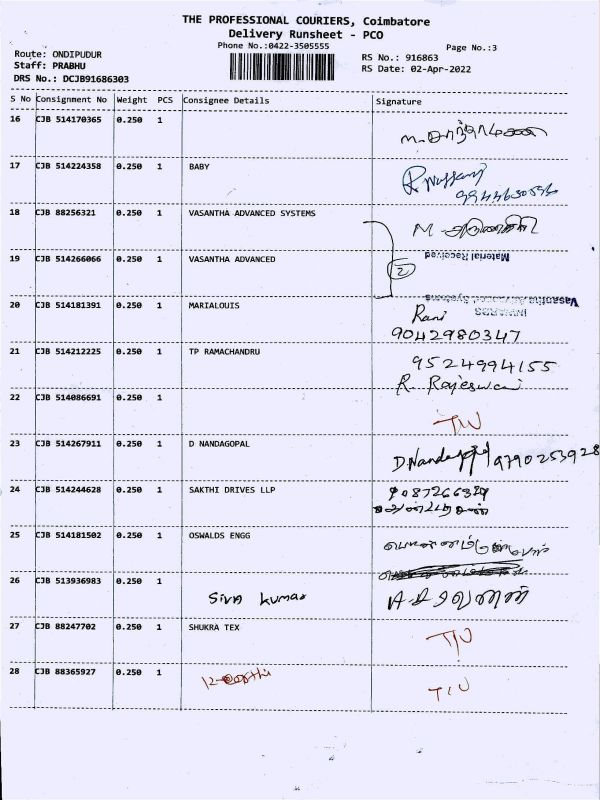 THE PROFESSIONAL COURIERS, Coimbatore
Delivery Runsheet - PCO
Phone No.:0422-3505555
Page No.:3
Route: ONDIPUDUR
Staff: PRABHU
DRS No.: DCJB91686303
RS No.: 916863
RS Date: 02-Apr-2022
S No Consignment No Weight PCS Consignee Details Signature
16 CJB 514170365 0.250 1
17 CJB 514224358 0.250 1 BABY
18 CJB 88256321 0.250 1 VASANTHA ADVANCED SYSTEMS
19 CJB 514266066 0.250 1 VASANTHA ADVANCED
2
Material Received
Vasantha Advanced Systems
INWARDS
20 CJB 514181391 0.250 1 MARIALOUIS Rani
9042980347
21 CJB 514212225 0.250 1 TP RAMACHANDRU 9524994155
R. Rajeswari
22 CJB 514086691 0.250 1
23 CJB 514267911 0.250 1 D NANDAGOPAL D.Nandagopal 9790253928
24 CJB 514244628 0.250 1 SAKTHI DRIVES LLP
25 CJB 514181502 0.250 1 OSWALDS ENGG
26 CJB 513936983 0.250 1 Siva kumar
27 CJB 88247702 0.250 1 SHUKRA TEX
28 CJB 88365927 0.250 1